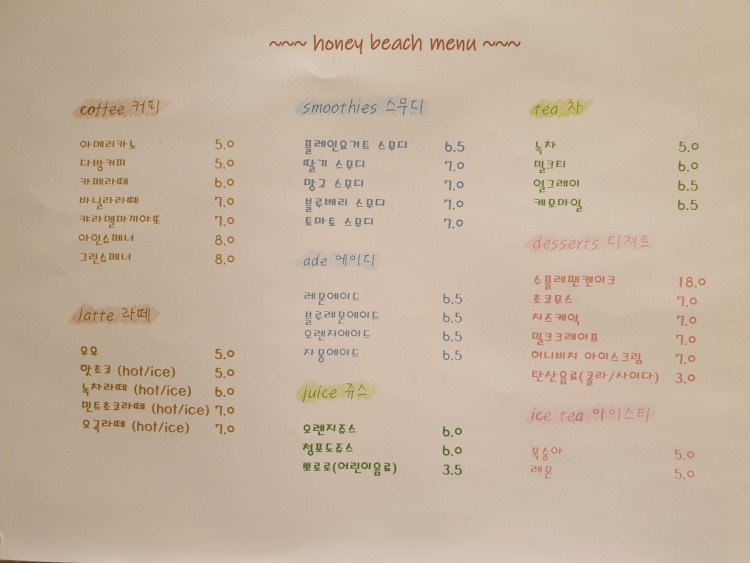 ~~~ honey beach menu ~~~
coffee 커피
아메리카노 5.0
다방커피 5.0
카페라떼 6.0
바닐라라떼 7.0
캬라멜마끼야또 7.0
아인스페너 8.0
그린스페너 8.0
latte 라떼
우유 5.0
핫초코 (hot/ice) 5.0
녹차라떼 (hot/ice) 6.0
민트초코라떼 (hot/ice) 7.0
오곡라떼 (hot/ice) 7.0
smoothies 스무디
플레인요거트 스무디 6.5
딸기 스무디 7.0
망고 스무디 7.0
블루베리 스무디 7.0
토마토 스무디 7.0
ade 에이디
레몬에이드 6.5
블루레몬에이드 6.5
오렌지에이드 6.5
자몽에이드 6.5
juice 쥬스
오렌지쥬스 6.0
청포도쥬스 6.0
뽀로로(어린이음료) 3.5
tea 차
녹차 5.0
밀크티 6.0
얼그레이 6.5
케모마일 6.5
desserts 디져트
수플레팬켄이크 18.0
초코무스 7.0
치즈케익 7.0
밀크크레이프 7.0
허니비치 아이스크림 7.0
탄산음료(콜라/사이다) 3.0
ice tea 아이스티
복숭아 5.0
레몬 5.0